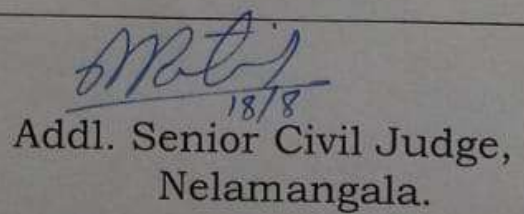 18/8
Addl. Senior Civil Judge,
Nelamangala.